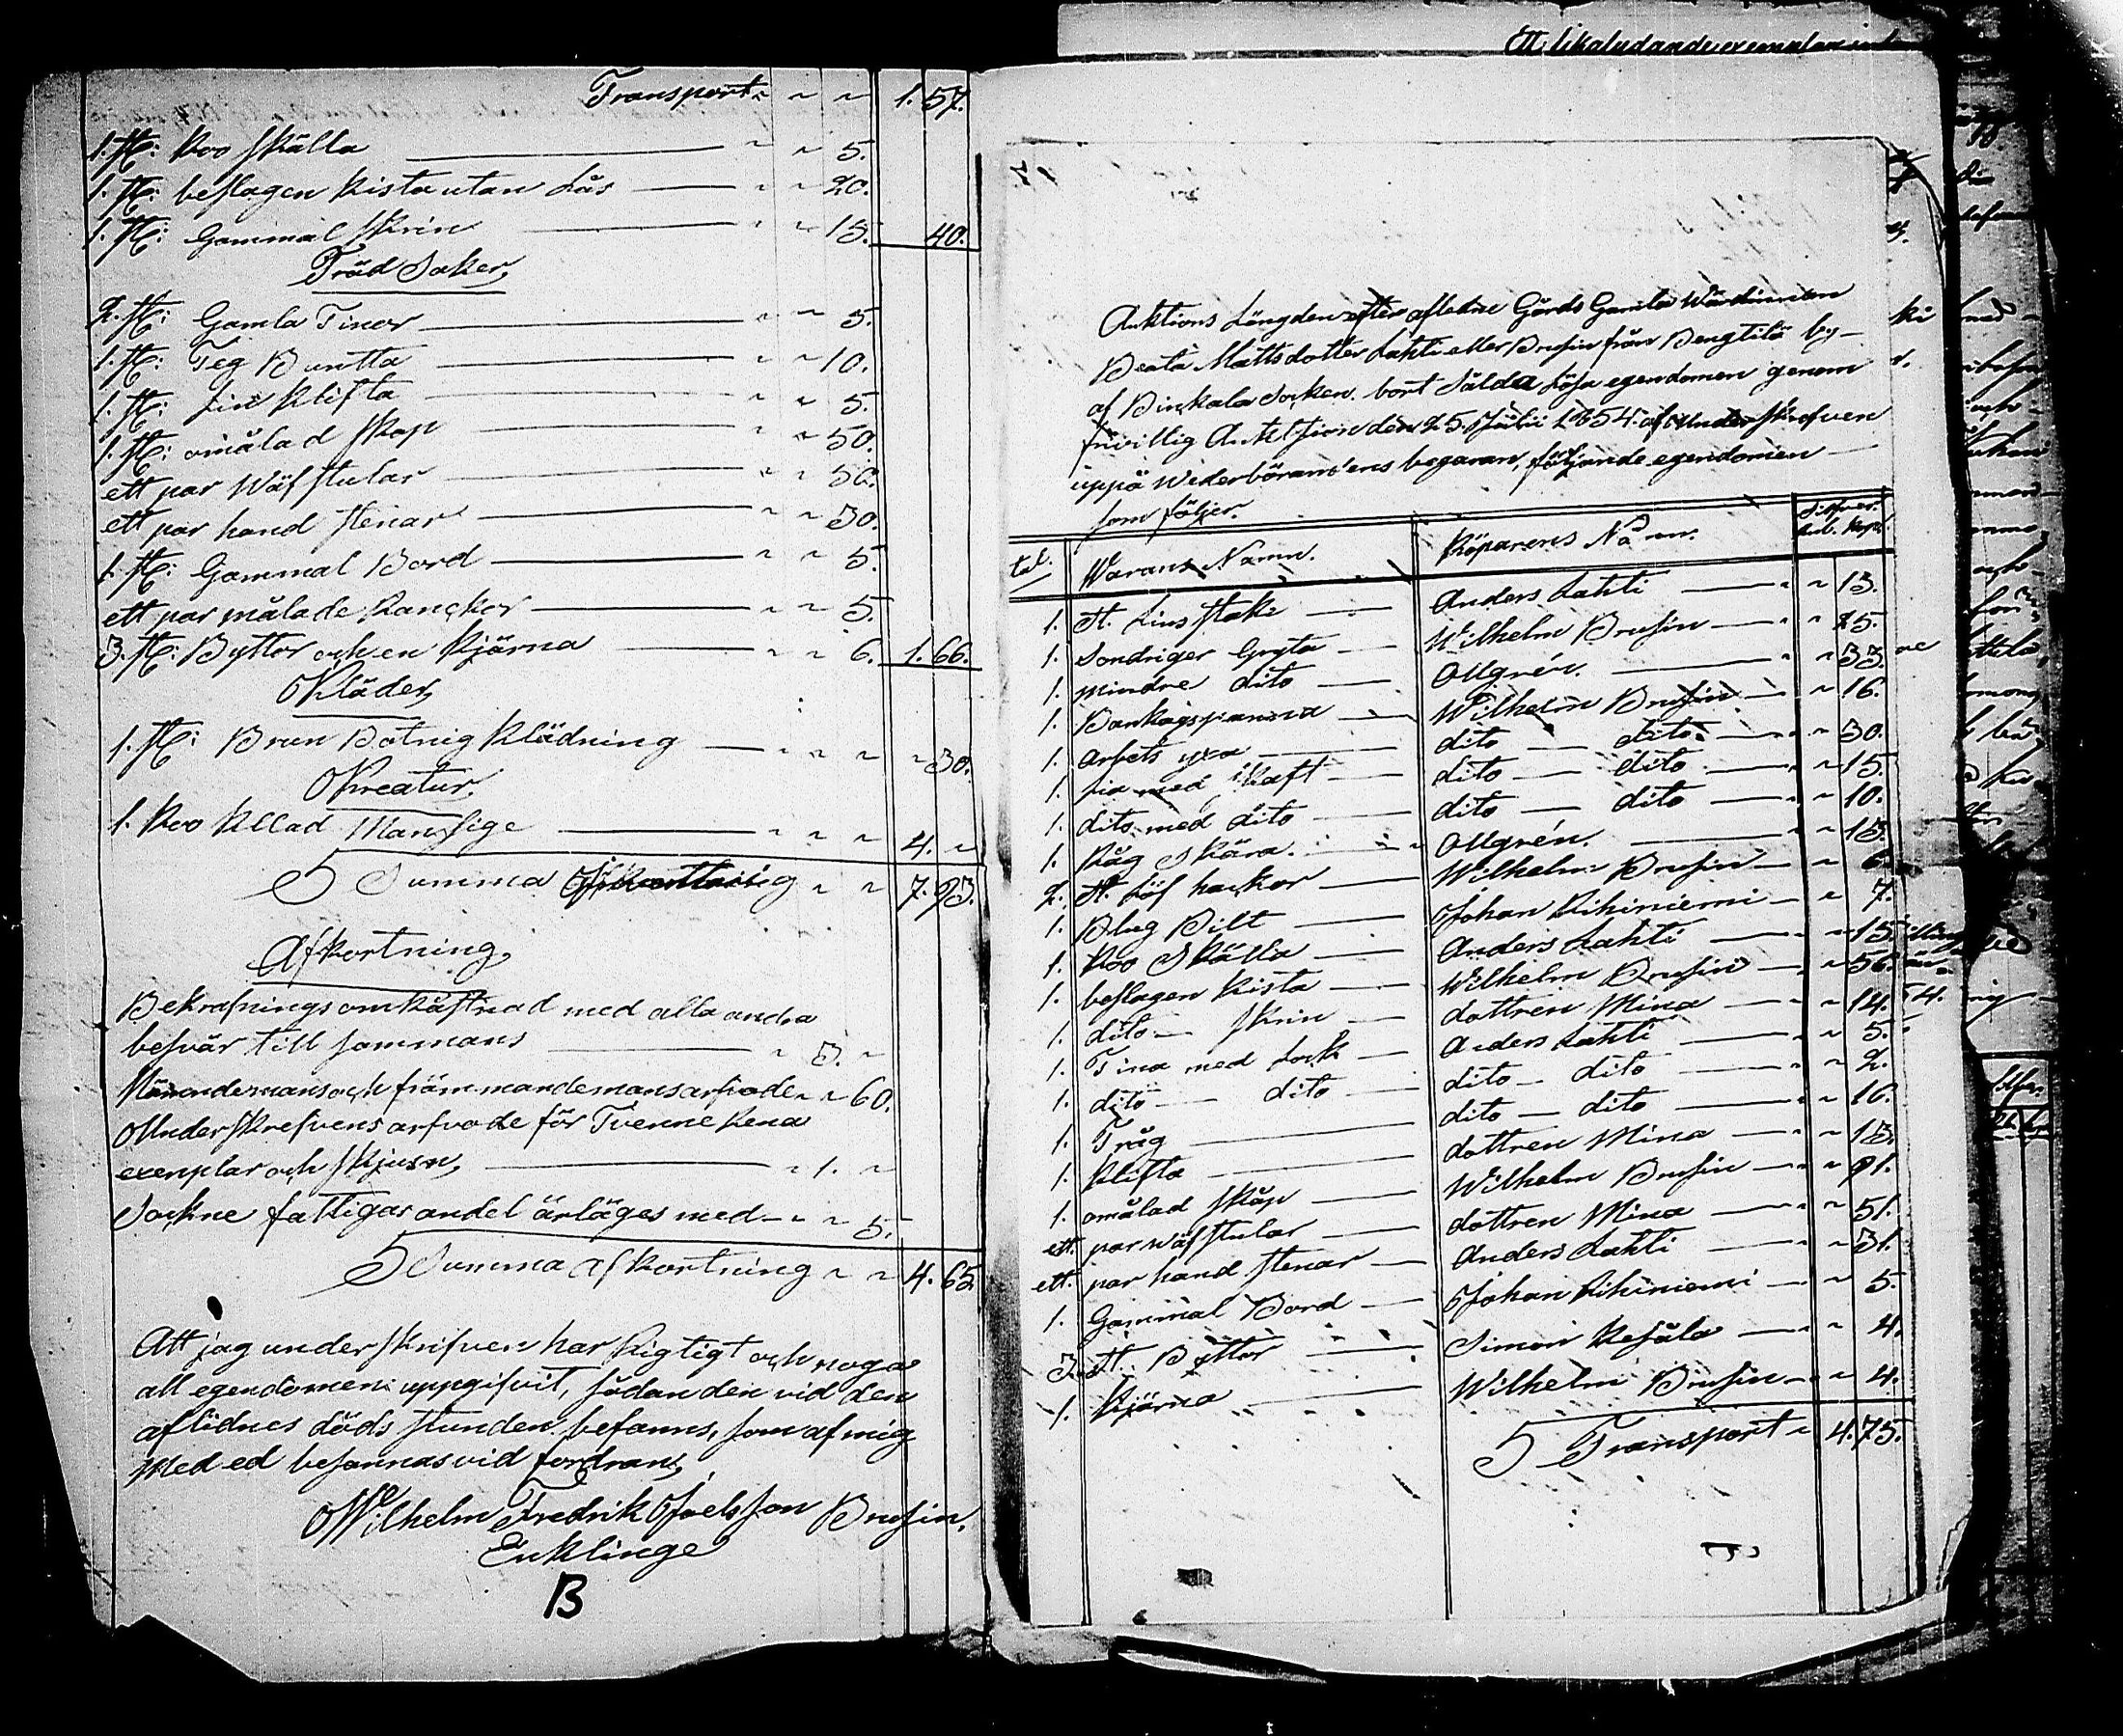 Ett likaludande exemplar
Transport " " 1. 57.
1. st: Koo skälla " " 5.
1. st: beslagen Kista utan Lås " " 20.
1. st: Gammal skrin " " 15. 40.
Träd Saker,
2. st: Gamla Tinor " " 5.
1. st: Teg Buntta " " 10.
1. st: Lin klifta " " 5.
1. st: omålad skap " " 50.
ett par Wäfstular " " 50.
ett par hand stenar " " 30.
1. st: Gammal Bord " " 5.
ett par målade Kanckor " " 5.
3. st: Byttor och en Kjärna " " 6. 1. 66.
Kläder,
1. st: Brun Botnig Klädning " " " " 30.
Kreatur.
1. Koo Kllad Mansige " " " 4. "
S Summa " " 7. 93.
Afkortning,
Bekrafnings omkåstnad med alla andra
besvär till sammans " 3. "
Wärendemans och främmandemans arfvode " " 60.
Underskrefvens arfvode för Tvenne Rena
exemplar och skjusn, " 1. "
Sockne fattigas andel ärläges med " " 5.
S Summa afkortning " " 4. 65.
Att jag underskrifven har Rigtigt och noga
all egendomen uppgifvit, sådan den vid den
aflidnes döds stunden befanns, som af mig
med ed besannas vid fordran,
Wilhelm Fredrik Joelsson Brusin,
Enklinge
B
Auktions Längden efter afledne Gårds Gamla Wärdinnan
Beata Mattsdotter Lahti eller Brusin från Bengtilä by
af Binkala Socken. bort Sålda Lösa egendomen genom
frivillig Auktsion den 25. Julii 1854. af Underskrefven
uppå wederbörandens begaran, följande egendomen
som följer.
tal. Warans Namn. Köparens Namn. Silfver Rub. Kop.
1. st. Lius stake Anders Lahti " " 13.
1. Sondriger Gryta Wilhelm Brusin " " 25.
1. mindre dito Ollgrén. " " 33.
1. Bankagspanna Wilhelm Brusin " 16.
1. arbets yxa dito dito " " 30.
1. Lia med skaft dito dito " " 15.
1. dito med dito dito dito " " 10.
1. Råg Skära. Ollgrén. " " 13.
2. st. Löf hackor Wilhelm Brusin " 6.
1. Plug Bilt Johan Rihiniemi " 7.
1. Koo Skälla Anders Lahti " " 15.
1. beslagen Kista Wilhelm Brusin " " 56.
1. dito skrin dottren Mina " " 14.
1. Tina med Lock Anders Lahti " " 5.
1. dito dito dito dito " " 2.
1. Tråg dito dito " " 16.
1. Klifta dottren Mina " " 13.
1. omålad skåp Wilhelm Brusin " " 91.
ett. par wäfstular dottren Mina " " 51.
ett. par hand stenar Anders Lahti " " 31.
1. Gammal Bord Johan Rihiniemi " 5.
3. st. Byttor Simon Kesäla " " 4.
1. Kjärna Wilhelm Brusin " " 4.
S Transport " 4. 75.